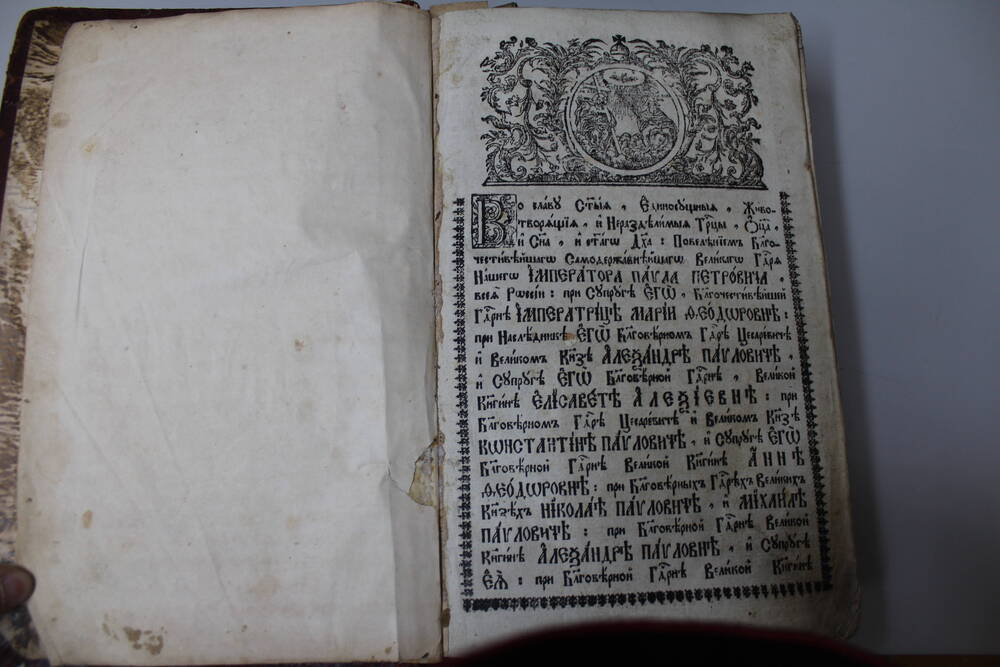 Во славу Ст҃ыѧ , Единосущныѧ , Живо-
творѧщїѧ , и Нераздѣлимыѧ Трⷪ҇цы , Ѻ҆ц҃а ,
и Сн҃а , и ст҃агѡ Дх҃а : Повелѣнїемъ Благо-
честивѣйшагѡ Самодержавнѣйшагѡ Великагѡ Гдⷭ҇рѧ
Нашегѡ ІМПЕРАТОРА ПАѴЛА ПЕТРОВИЧА ,
всеѧ Рѡссїи : при Супругѣ ЕГѠ , Благочестивѣйшей
Гдⷭ҇рнѣ ІМПЕРАТРИЦѢ МАРІИ ѲЕОДѠРОВНѢ :
при Наслѣдникѣ ЕГѠ Благовѣрномъ Гдⷭ҇рѣ Цесаревичѣ
и Великомъ Кн҃зѣ АЛЕѮАНДРѢ ПАѴЛОВИЧѢ ,
и Супругѣ ЕГѠ Благовѣрной Гдⷭ҇рнѣ , Великой
Кнѧгинѣ ЕЛІСАВЕТѢ АЛЕѮІЕВНѢ : при
Благовѣрномъ Гдⷭ҇рѣ Цесаревичѣ и Великомъ Кн҃зѣ
КѠНСТАНТІНѢ ПАѴЛОВИЧѢ , и Супругѣ ЕГѠ
Благовѣрной Гдⷭ҇рнѣ Великой Кнѧгинѣ АННѢ
ѲЕОДѠРОВНѢ : при Благовѣрныхъ Гдⷭ҇рѣхъ Великихъ
Кн҃зѣхъ НІКОЛАѢ ПАѴЛОВИЧѢ , и МІХАИЛѢ
ПАѴЛОВИЧѢ : при Благовѣрной Гдⷭ҇рнѣ Великой
Кнѧгинѣ АЛЕѮАНДРѢ ПАѴЛОВНѢ , и Супругѣ
ЕѦ : при Благовѣрной Гдⷭ҇рнѣ Великой Кнѧгинѣ